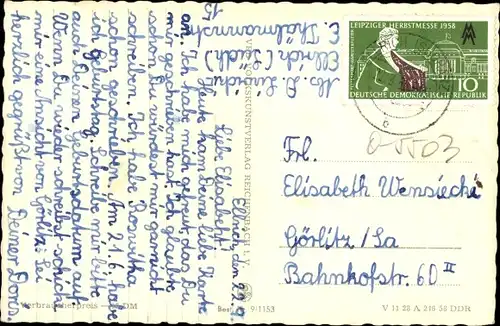 LEIPZIGER HERBSTMESSE 1958
10
DEUTSCHE DEMOKRATISCHE REPUBLIK
05503
Frl.
Elisabeth Wensiecki
Görlitz/Sa
Bahnhofstr. 60 II
Abs. D.
Ellrich (Südh)
E. Thälmannstr
15
Ellrich, den 22.9.
Liebe Elisabeth!
Heute kam Deine liebe Karte
an. Ich habe mich gefreut das Du
mir geschrieben hast. Ich glaubte
schon Du würdest mir garnicht
schreiben. Ich habe Roswitha
schon geschrieben. Am 21.6. habe
ich Geburtstag. Schreibe mir bitte
auch Deinen Geburtsdatum auf
Wenn Du wieder schreibst schicke
mir eine Ansicht von Görlitz. Sei
herzlich gegrüßt von Deiner Doris.
VOLKSKUNSTVERLAG REICHENBACH I. V.
Verbraucherpreis DM
Best. 9/1153
V 11 28 A 210 58 DDR